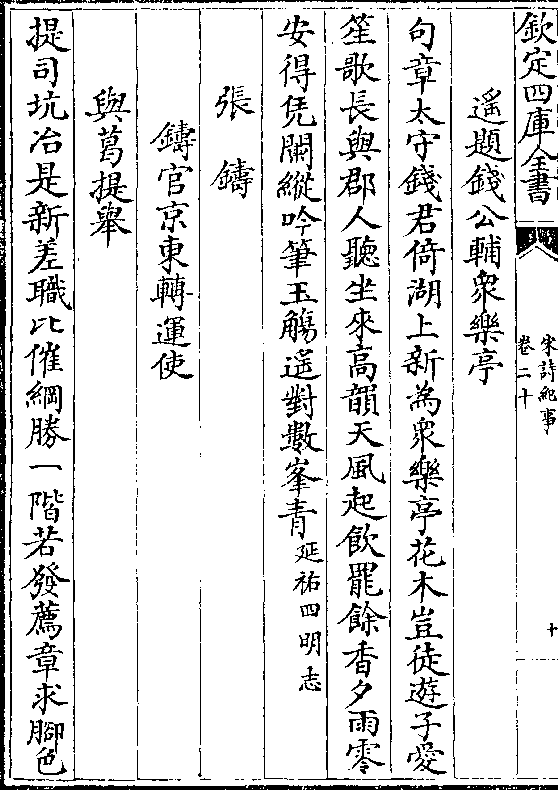 欽定四庫全書
宋詩紀事
卷二十
十
遥題錢公輔衆樂亭
句章太守錢君倚湖上新為衆樂亭花木豈徒遊子愛
笙歌長與郡人聽坐來高韻天風起飲罷餘香夕雨零
安得凭闌縱吟筆玉觴遥對數峯青延祐四明志
張鑄
鑄官京東轉運使
與葛提舉
提司坑冶是新差職比催綱勝一階若發薦章求腳色